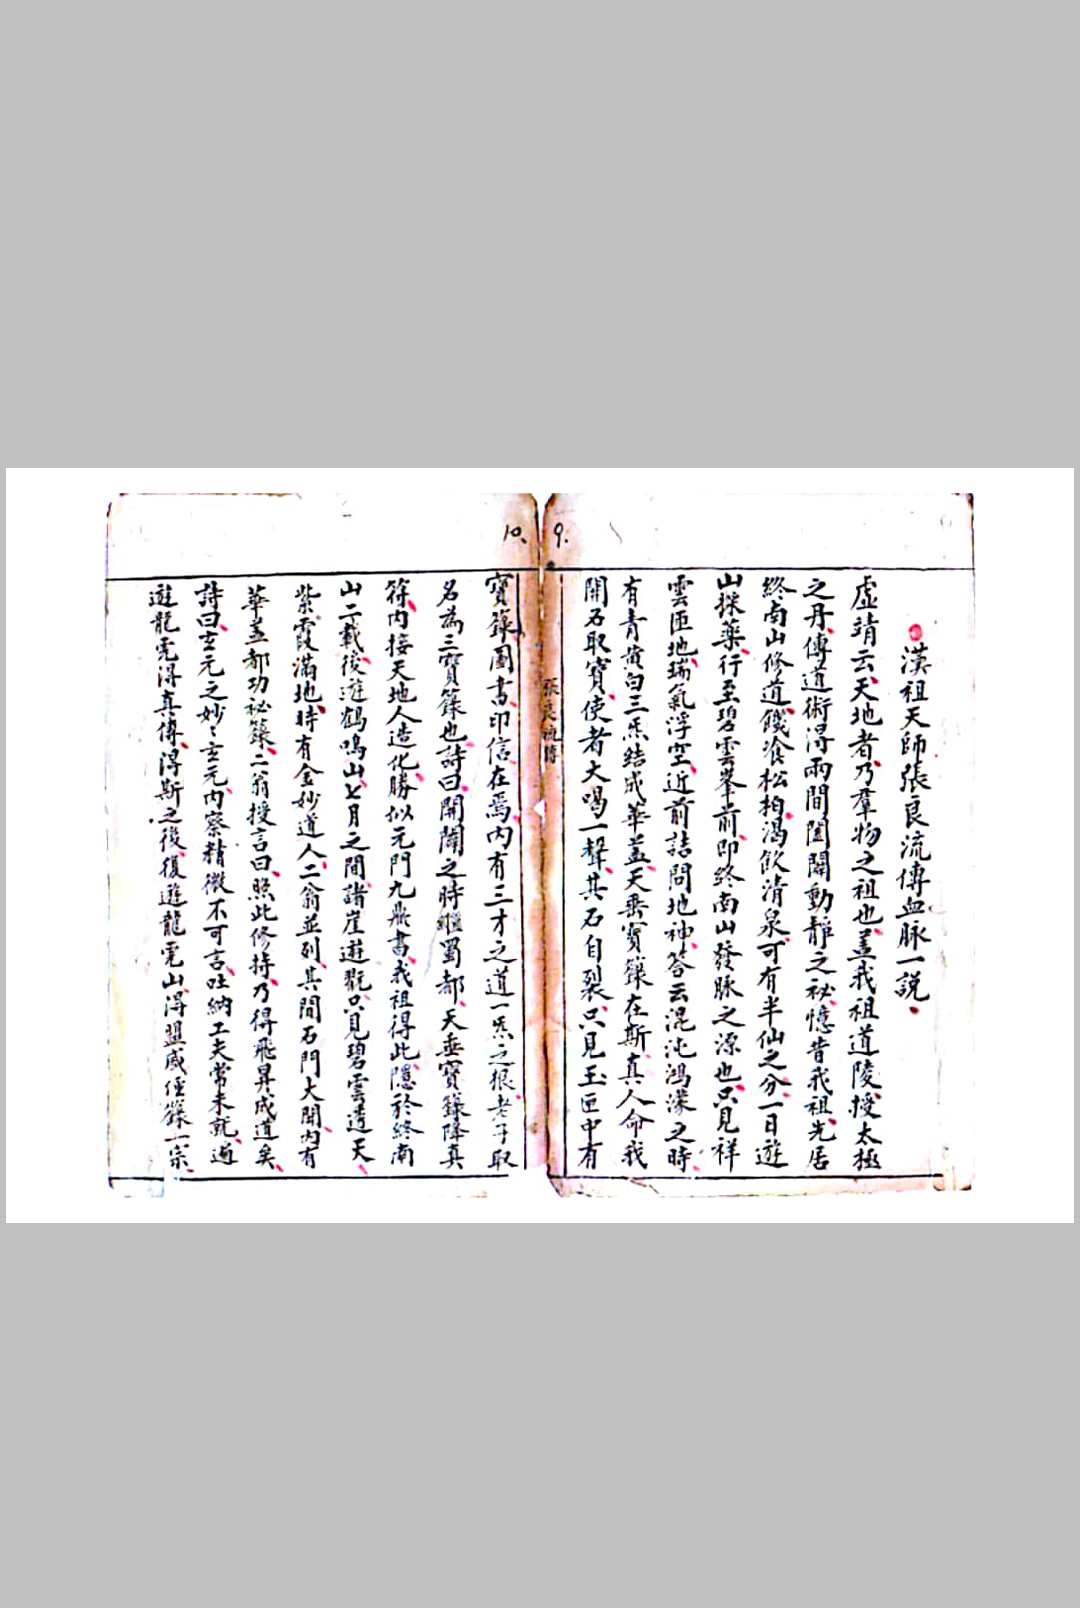 漢祖天師張良流傳血脉一説
虛靖云天地者乃羣物之祖也盖我祖道陵授太極
之丹傳道術得兩間闔闢動靜之秘憶昔我祖先居
終南山修道饑飡松柏渴飲清泉可有半仙之分一日遊
山採藥行至碧雲峯前即終南山發脉之源也只見祥
雲匝地瑞氣浮空近前詰問地神答云混沌鴻濛之時
有青黃白三炁結成華盖天垂寶籙在斯真人命我
開石取寶使者大喝一聲其石自裂只見玉匣中有
9.
張良流傳
10.
寶籙圖書印信在焉内有三才之道一炁之根老子取
名為三寶籙也詩曰開闢之時繼蜀都天垂寶籙降真
符内接天地人造化勝似元門九鼎書我祖得此隱於終南
山二載後遊鶴鳴山七月之間諸崖遊翫只見碧雲透天
紫霞滿地時有金妙道人二翁並列其間石門大開内有
華盖都功祕籙二翁授言曰照此修持乃得飛昇成道矣
詩曰玄元之妙〻玄元内察精微不可言吐納工夫常未就遍
遊龍虎得真傳得斯之後復遊龍虎山得盟威經籙一宗